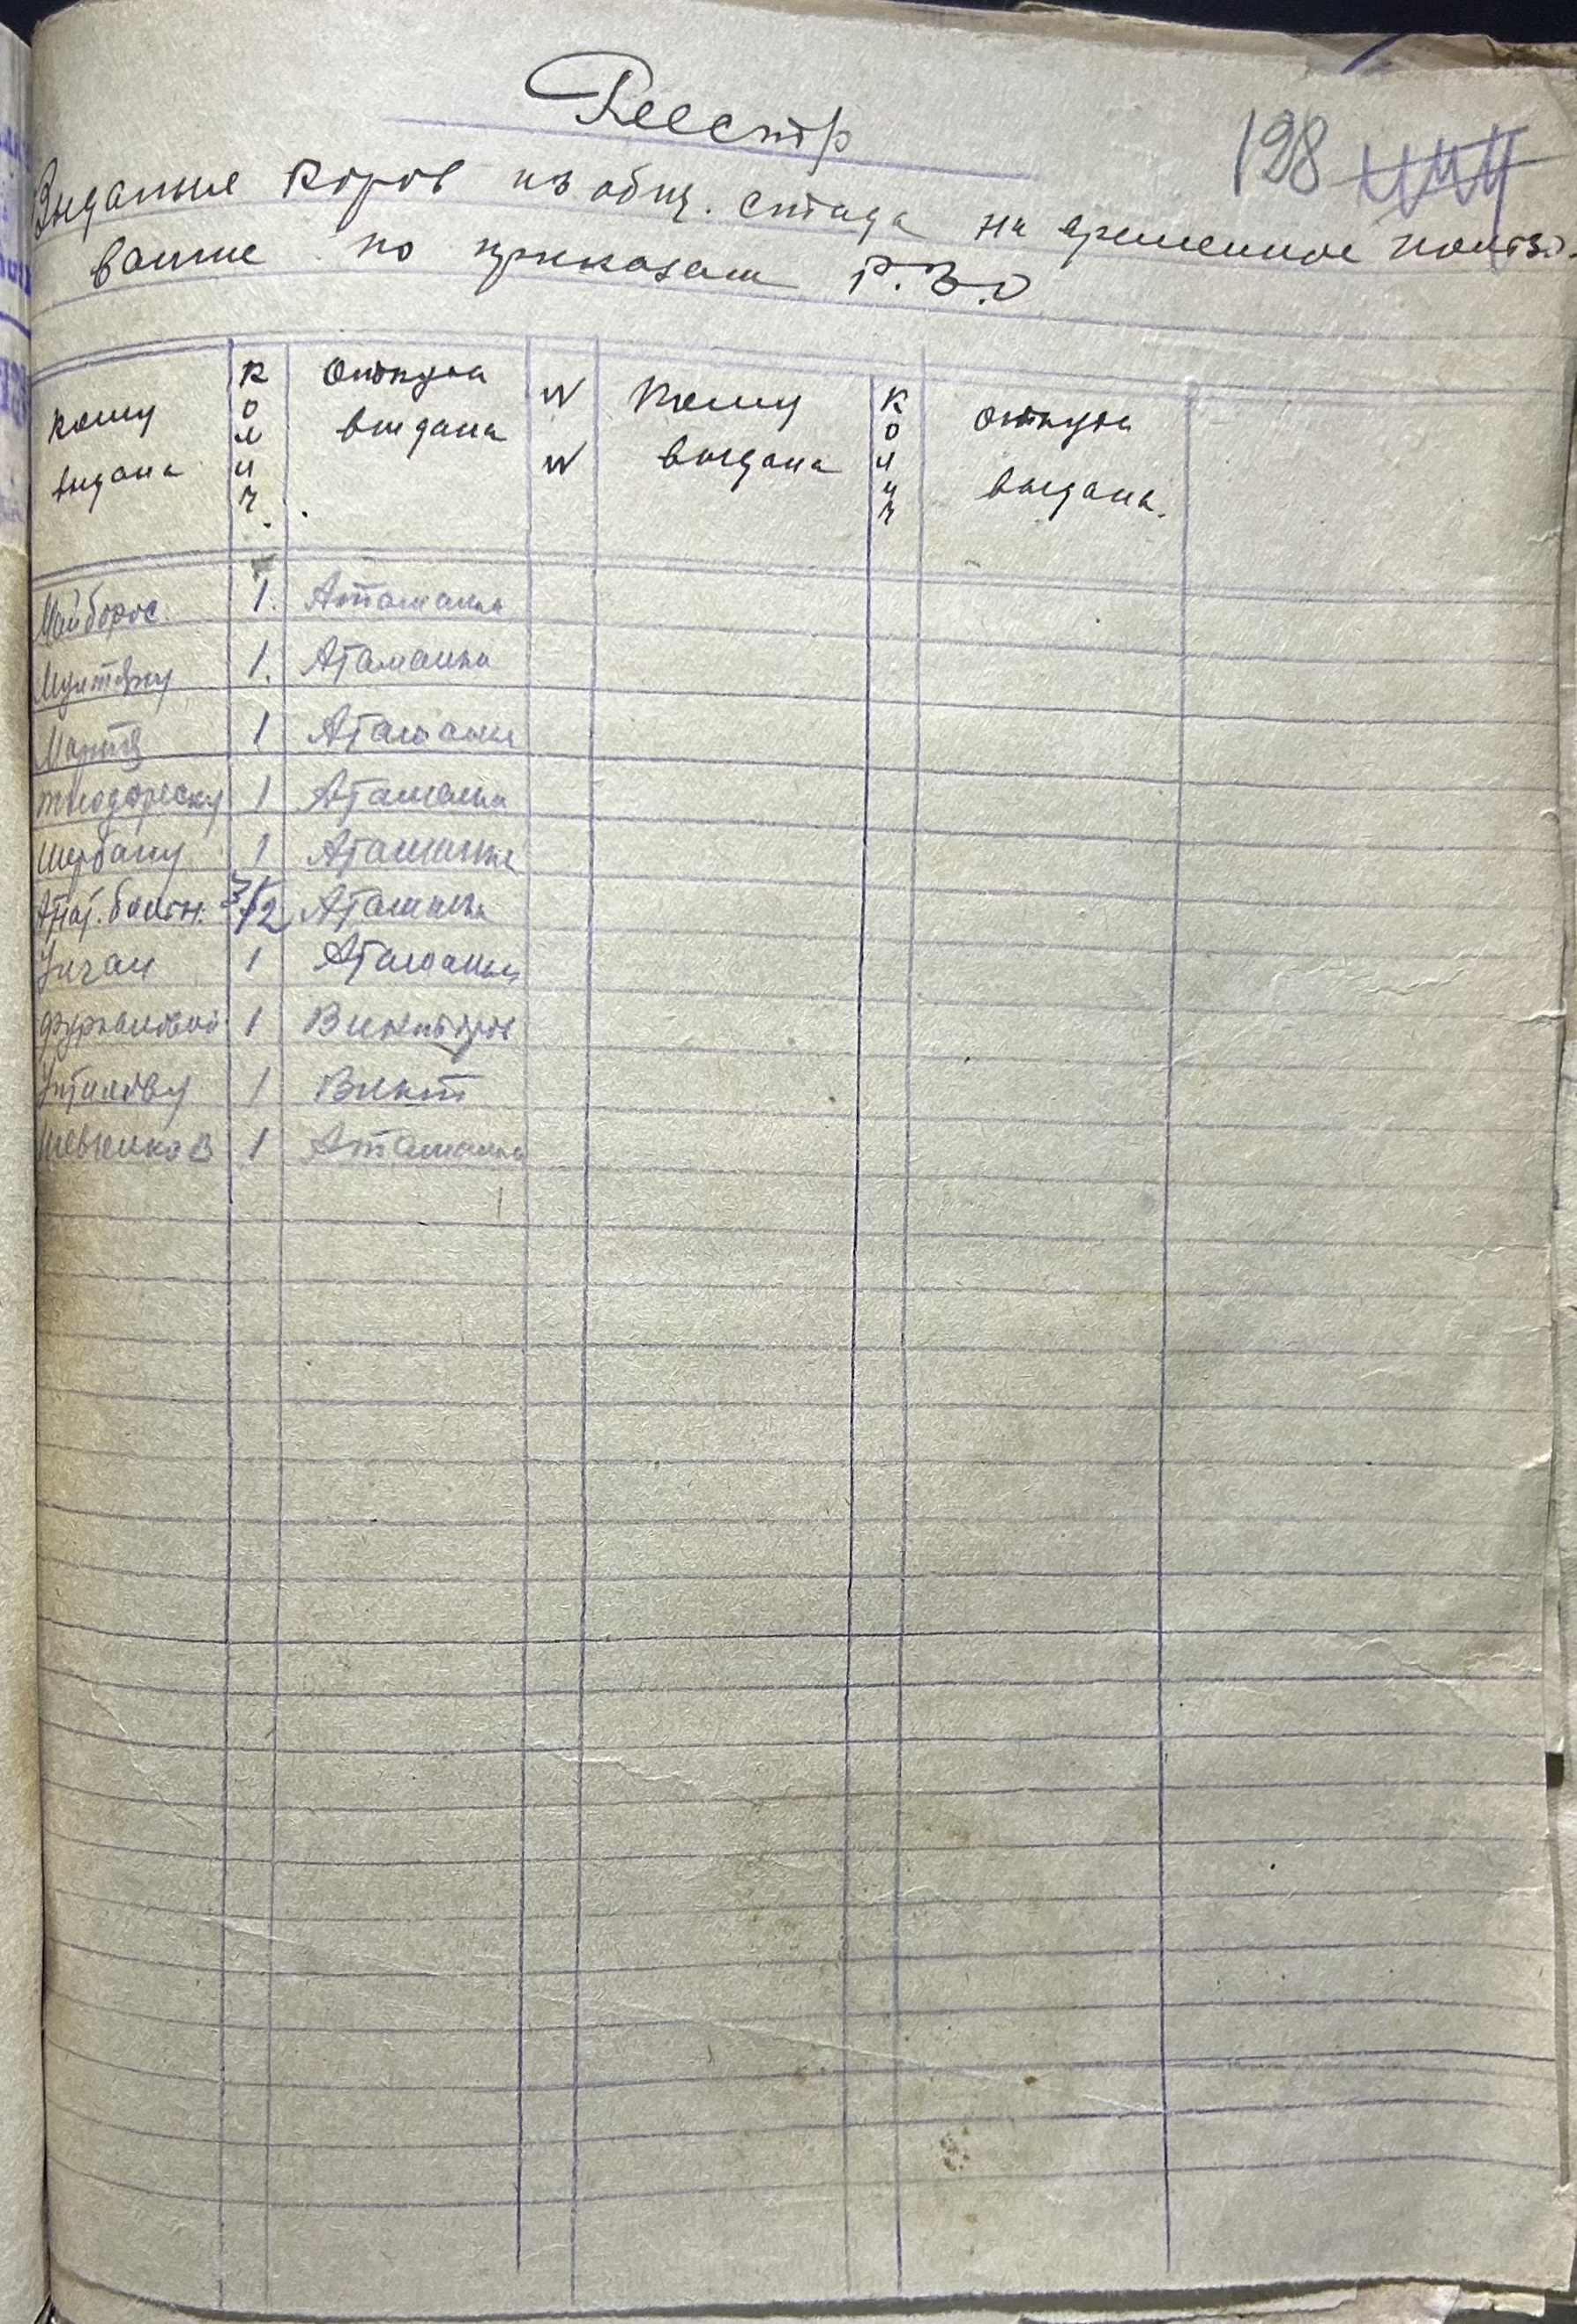 Реестр
198
Выдание коров из общ. стада на временное пользо-
вание по приказам Р.З.О
Кому выдана Колич. Откуда выдана № № Кому выдана Колич Откуда выдана.
Майборос. 1. Аттаманка
1. Атаманка
1 Атаманка
Теодореску 1 Атаманка
Щербану 1 Атаманка
Атат. больн. 3/2 Атаманка
Узган 1 Атаманка
Фурмановой 1 Викторов
Устинову 1 Викт
Шевченков 1 Атаманка